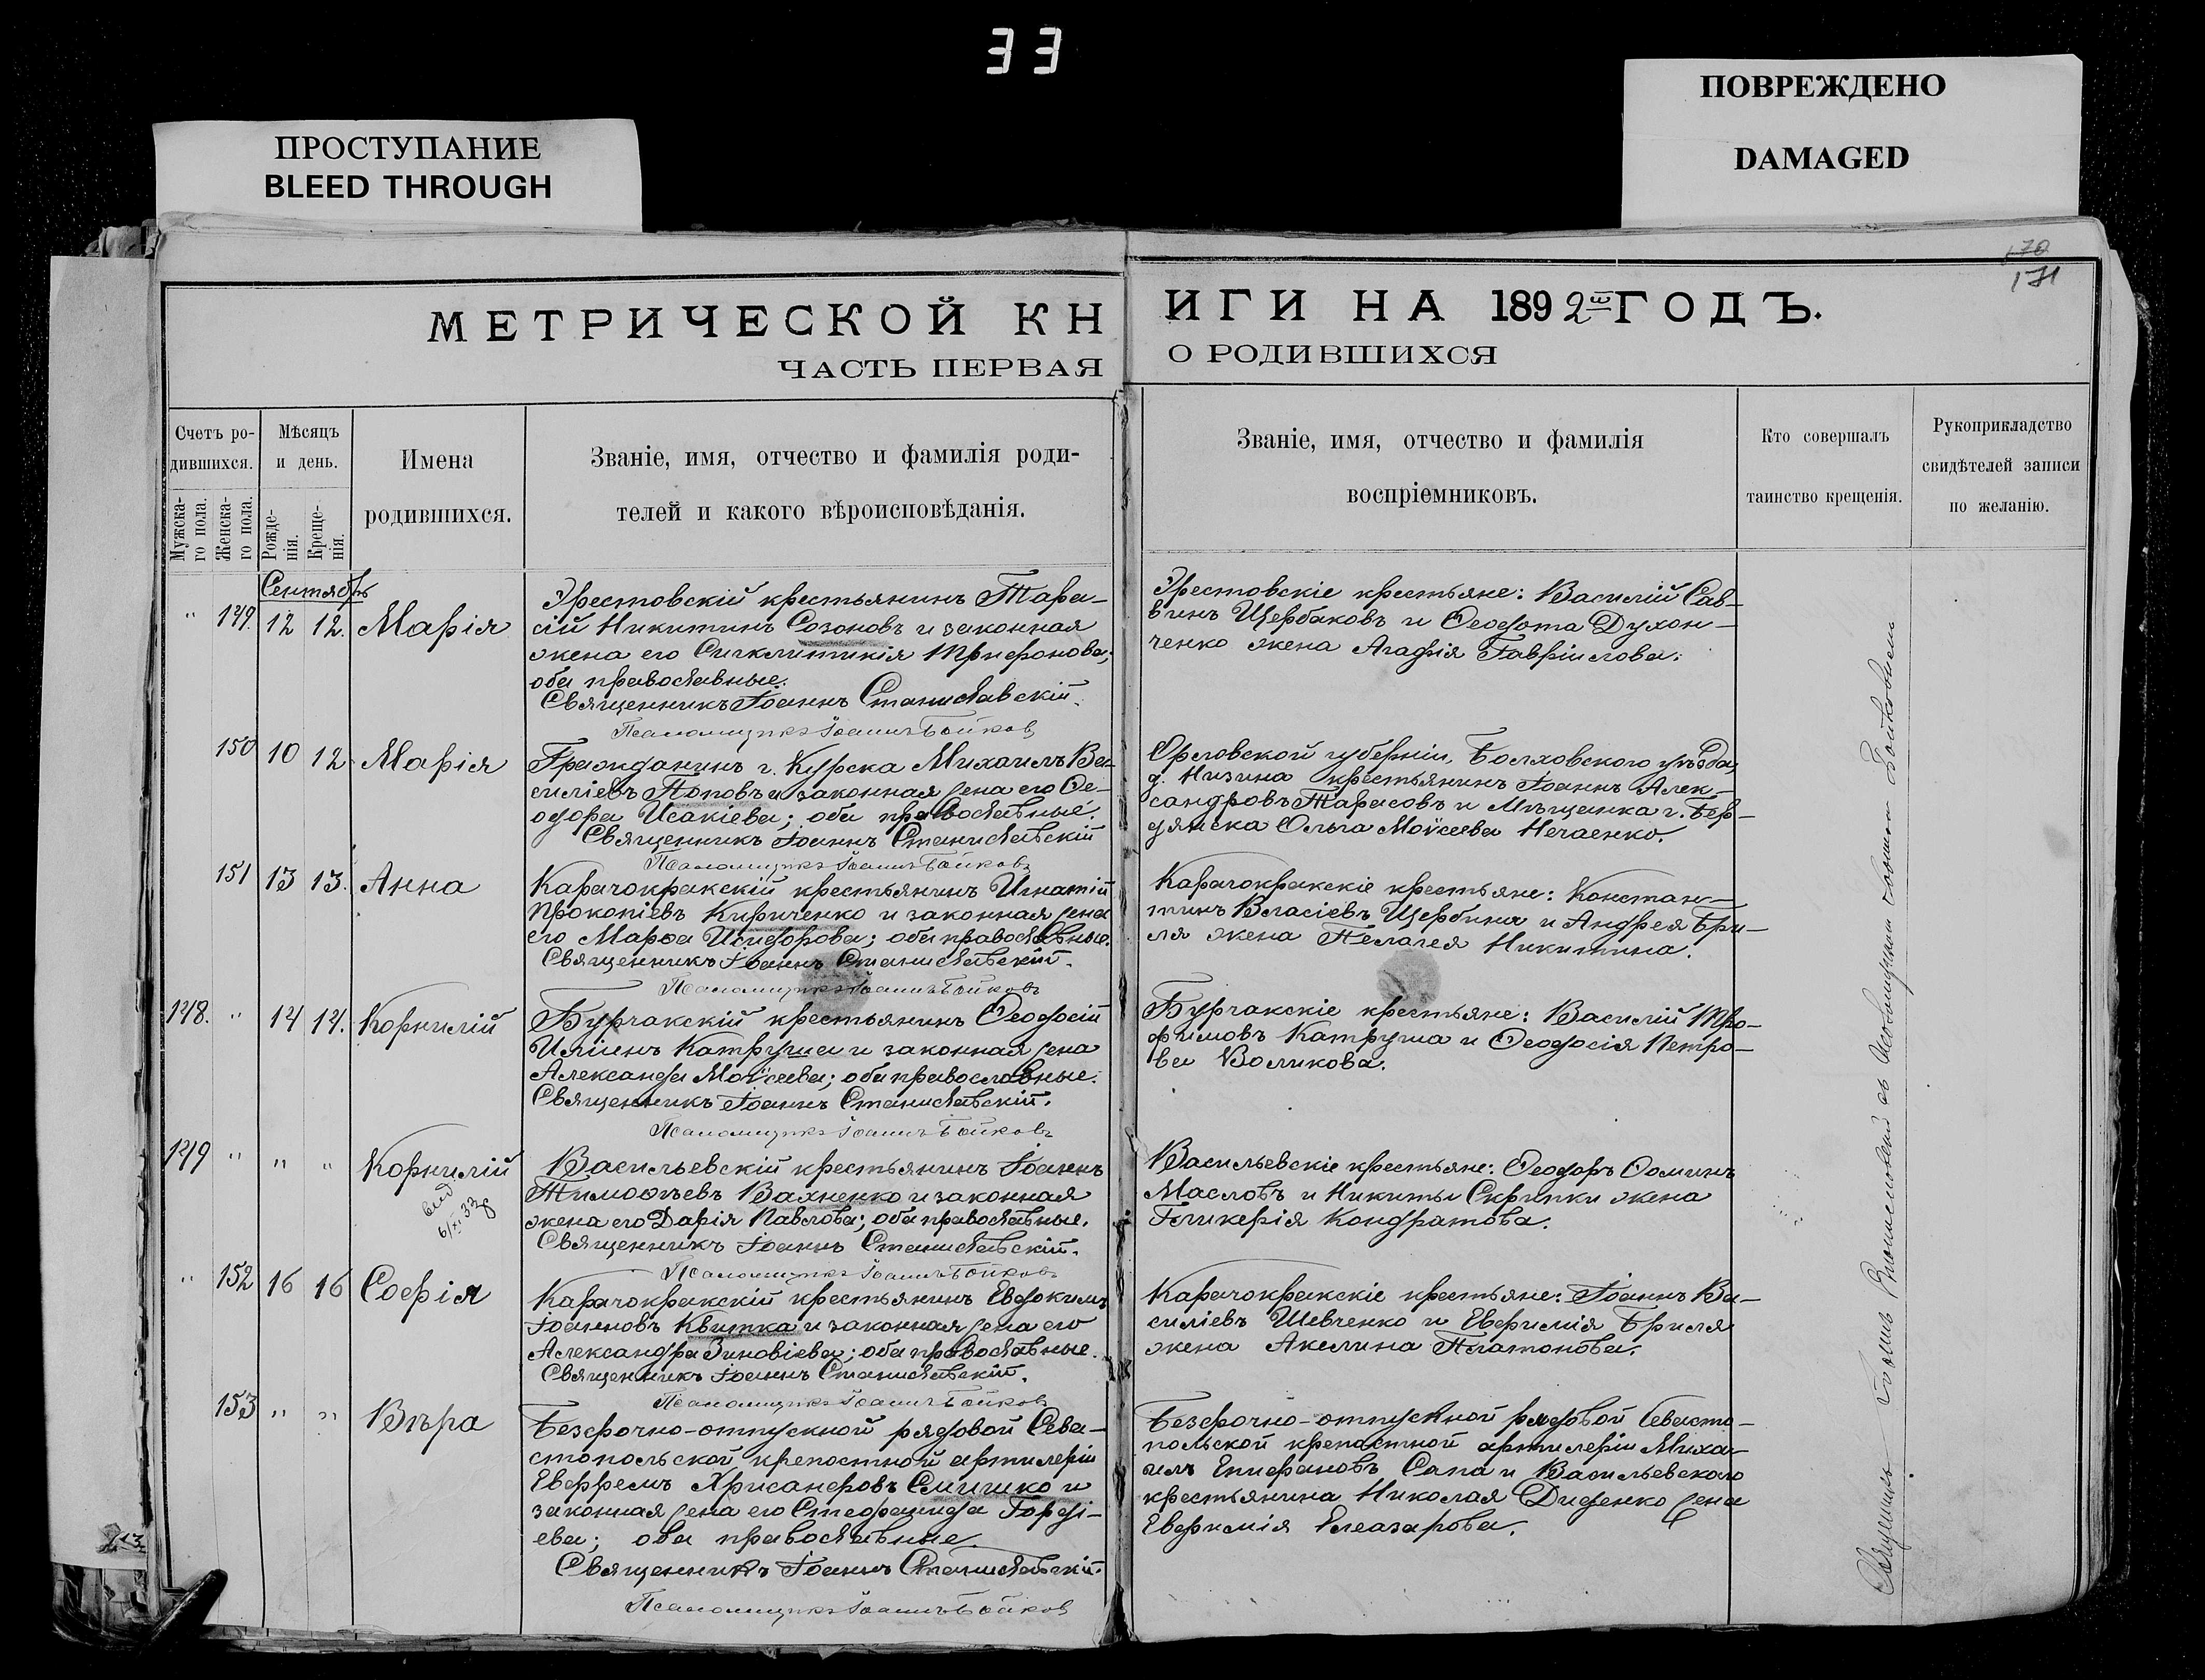 33
ПРОСТУПАНИЕ
BLEED THROUGH
ПОВРЕЖДЕНО
DAMAGED
170
171
МЕТРИЧЕСКОЙ КНИГИ НА 1892 ГОДЪ.
ЧАСТЬ ПЕРВАЯ О РОДИВШИХСЯ
Счетъ ро-
дившихся.
Мужска-
го пола.
Женска-
го пола.
Мѣсяцъ
и день.
Рожде-
нія.
Креще-
нія.
Имена
родившихся.
Званіе, имя, отчество и фамилія роди-
телей и какого вѣроисповѣданія.
Званіе, имя, отчество и фамилія
воспріемниковъ.
Кто совершалъ
таинство крещенія.
Рукоприкладство
свидѣтелей записи
по желанію.
Сентябрь
" 149. 12 12. Марія
Эрестовскій крестьянинъ Тара-
сій Никитинъ Созоновъ и законная
жена его Сигклитикія Трифонова;
оба православные.
Священникъ Іоаннъ Станиславскій.
Псаломщикъ Іоаннъ Бойковъ
Эрестовскіе крестьяне: Василій Сав-
винъ Щербаковъ и Ѳеодота Духон-
ченко жена Агафія Гавріилова.
150 10 12 Марія
Гражданинъ г. Курска Михаилъ Ва-
силіевъ Поповъ и законная жена его Ѳе-
одора Исакіева; оба православные.
Священникъ Іоаннъ Станиславскій
Псаломщикъ Іоаннъ Бойковъ
Орловской губерніи, Болховского уѣзда,
д. Низина крестьянинъ Іоаннъ Алек-
сандровъ Тарасовъ и Мѣщанка г. Бер-
дянска Ольга Моисеева Нечаенко.
151 13 13. Анна
Карачокракскій крестьянинъ Игнатій
Прокопіевъ Кириченко и законная жена
его Марѳа Исидорова; оба православные.
Священникъ Іоаннъ Станиславскій.
Псаломщикъ Іоаннъ Бойковъ
Карачокракскіе крестьяне: Констан-
тинъ Власіевъ Щербина и Андрея Бри-
ля жена Пелагея Никитина.
148. " 14 14. Корнилій
Бурчакскій крестьянинъ Ѳеодосій
Иліинъ Катруша и законная жена
Александра Моисеева; оба православные.
Священникъ Іоаннъ Станиславскій.
Псаломщикъ Іоаннъ Бойковъ
Бурчакскіе крестьяне: Василій Тро-
фимовъ Катруша и Ѳеодосія Петро-
ва Воликова.
149 " " " Корнилій
Васильевскій крестьянинъ Іоаннъ
Тимоѳѣевъ Вахненко и законная
жена его Дарія Павлова; оба православные.
Священникъ Іоаннъ Станиславскій.
Псаломщикъ Іоаннъ Бойковъ
Васильевскіе крестьяне: Ѳеодоръ Ѳоминъ
Масловъ и Никиты Скрипки жена
Гликерія Кондратова.
" 152 16 16 Софія
Карачокракскій крестьянинъ Евдокимъ
Іоанновъ Квитка и законная жена его
Александра Зиновіева; оба православные.
Священникъ Іоаннъ Станиславскій.
Псаломщикъ Іоаннъ Бойковъ
Карачокракскіе крестьяне: Іоаннъ Ва-
силіевъ Шевченко и Евфимія Бриля
жена Акилина Платонова.
153 " " Вѣра
Безсрочно-отпускной рядовой Сева-
стопольской крепостной артилеріи
Евфремъ Хрисанфовъ Смишко и
законная жена его Стефанида Горді-
ева; оба православные.
Священникъ Іоаннъ Станиславскій.
Псаломщикъ Іоаннъ Бойковъ
Безсрочно-отпускной рядовой Севасто-
польской крепостной артилеріи Миха-
илъ Епифановъ Сапа и Васильевского
крестьянина Николая Диденко жена
Евфимія Елеазарова.